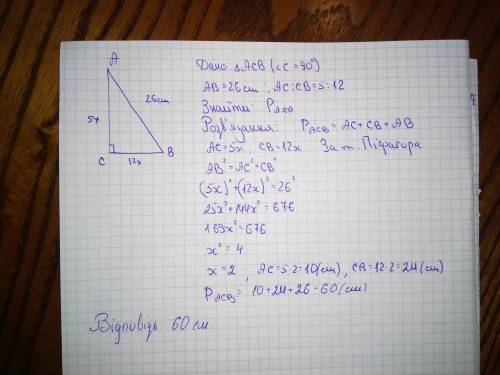 A
5x
26cm
C
12x
B
Дано ΔACB (∠C = 90°)
AB = 26 cm, AC:CB = 5:12
Знайти: P_ACB
Розв'язання: P_ACB = AC + CB + AB
AC = 5x, CB = 12x За т. Піфагора
AB² = AC² + CB²
(5x)² + (12x)² = 26²
25x² + 144x² = 676
169x² = 676
x² = 4
x = 2, AC = 5·2 = 10 (см), CB = 12·2 = 24 (см)
P_ACB = 10 + 24 + 26 = 60 (см)
Відповідь 60 см.